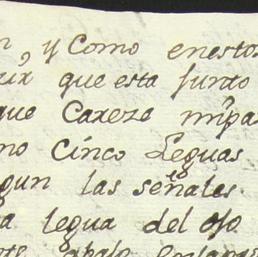 y Como enestos
que esta junto
que Careze mi pa
no cinco Leguas
gun las señales
a legua del oJo